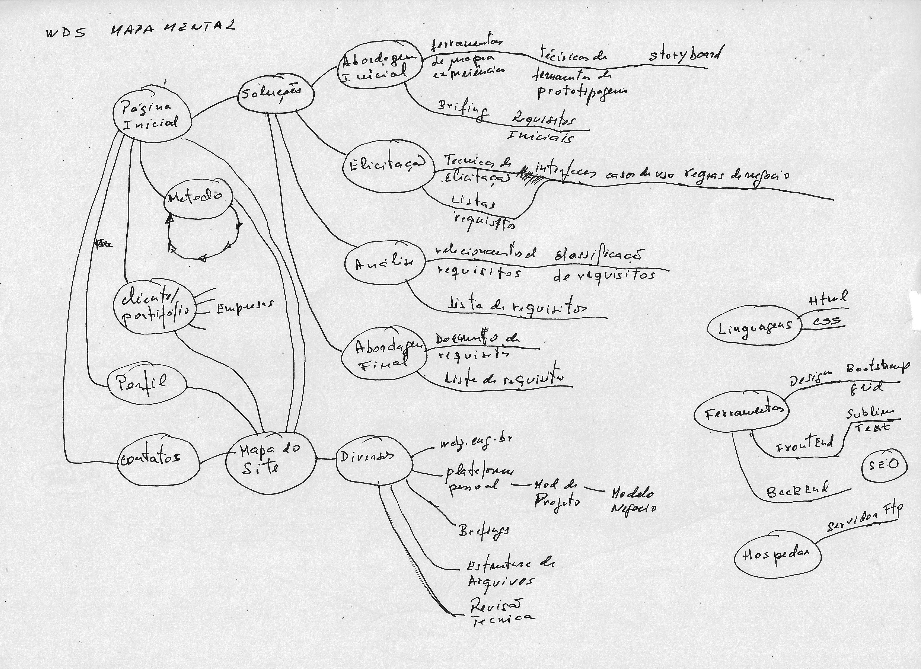 WDS MAPA MENTAL
Página
Inicial
Soluções
Abordagem
Inicial
ferramentas
de
experiências
técnicas de
ferramentas de
prototipagem
storyboard
Brifing
Requisitos
Iniciais
Elicitação
Tecnicas de
elicitação
interfaces casos de uso regras de negocio
Listas
requisitos
Metodo
Análise
relacionamento de
requisitos
classificação
de requisitos
Lista de requisitos
cliente/
portifolio
Empresas
Abordagem
Final
Documento de
requisitos
Lista de requisitos
Perfil
contatos
Mapa do
Site
Diversos
.eng.br
plataforma
pessoal
Mod de
Projeto
Modelo
Negocio
Brefings
Estrutura de
Arquivos
Revisão
Tecnica
Linguagens
Html
CSS
Ferramentas
Design
Bootstrap
grid
FrontEnd
Sublime
Text
BackEnd
SEO
Hospedar
Servidor Ftp